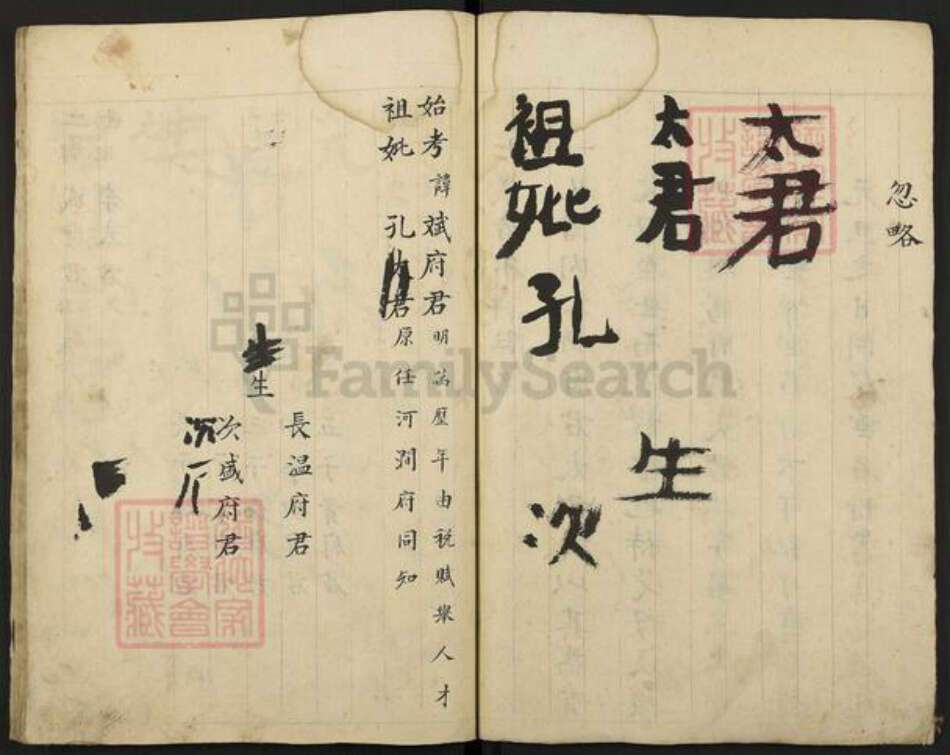 忽略
太君
太君 生
祖妣孔 次
始考諱斌府君明萬歷年由税賦舉人才
祖妣 孔太君原任河澗府同知
長温府君
生
次盛府君
沉
FamilySearch